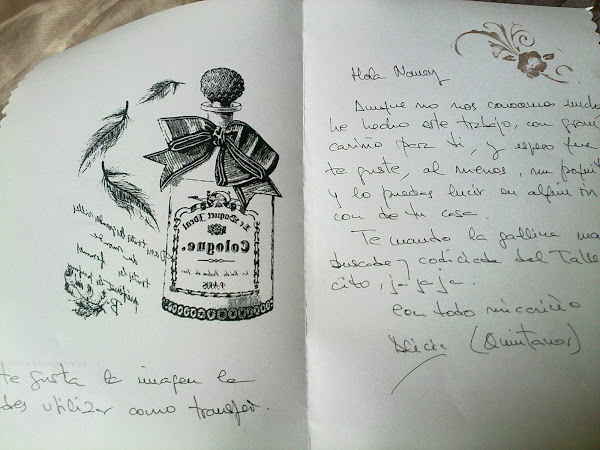 te gusta la imagen la
des utilizar como transfer.
Le Boquet Focal
Cologne.
PARIS
Hola Nancy
Aunque no nos conocemos mucho
he hecho este trabajo, con gran
cariño para ti, y espero que
te guste, al menos, un poquit
y lo puedas lucir en algún rin
con de tu casa.
Te mando la gallina ma
buscada y codiciada del Talle
cito, ja ja ja.
con todo mi cariño
Alicia (Quintanar)